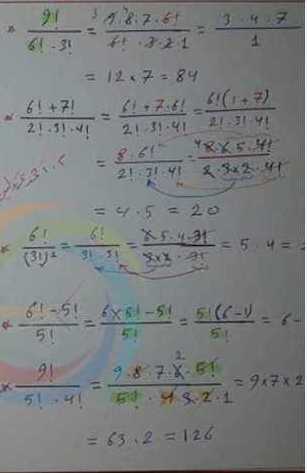 * 9!/(6!·3!) = (9·8·7·6!)/(6!·3·2·1) = (3·4·7)/1
= 12×7 = 84
* (6!+7!)/(2!·3!·4!) = (6!+7·6!)/(2!·3!·4!) = 6!(1+7)/(2!·3!·4!)
= (8·6!)/(2!·3!·4!) = (8·6·5·4!)/(2·3×2·4!)
= 4·5 = 20
* 6!/(3!)² = 6!/(3!·3!) = (6·5·4·3!)/(3×2·3!) = 5·4 =
* (6!-5!)/5! = (6×5!-5!)/5! = 5!(6-1)/5! = 6-
* 9!/(5!·4!) = (9·8·7·6·5!)/(5!·4·3·2·1) = 9×7×2
= 63·2 = 126